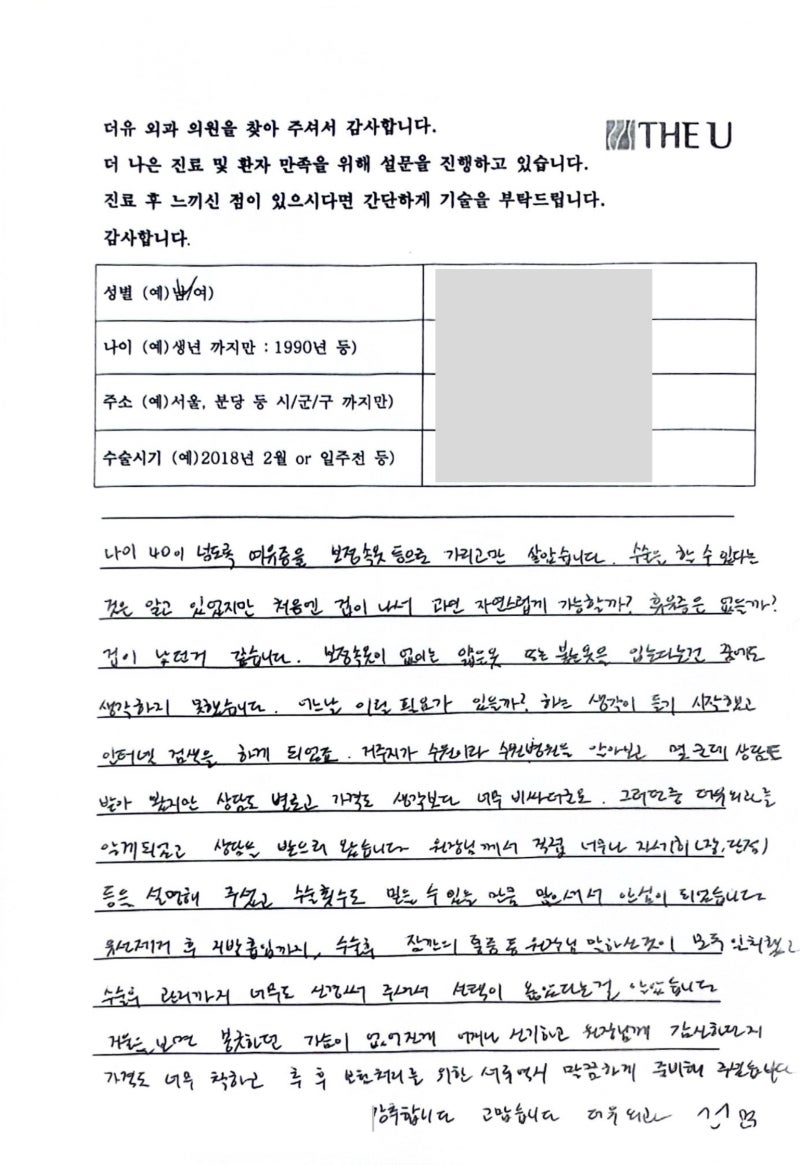 더유 외과 의원을 찾아 주셔서 감사합니다.
THE U
더 나은 진료 및 환자 만족을 위해 설문을 진행하고 있습니다.
진료 후 느끼신 점이 있으시다면 간단하게 기술을 부탁드립니다.
감사합니다.
성별 (예)남/여)
나이 (예)생년 까지만 : 1990년 등)
주소 (예)서울, 분당 등 시/군/구 까지만)
수술시기 (예)2018년 2월 or 일주전 등)
나이 40이 넘도록 여유증을 보정속옷 등으로 가리고만 살았습니다. 수술은 할 수 있다는
것은 알고 있었지만 처음엔 겁이 나서 과연 자연스럽게 가능할까? 후유증은 없을까?
겁이 났던거 같습니다. 보정속옷이 없이는 얇은옷 또는 붙는옷을 입는다는건 꿈에도
생각하지 못했습니다. 어느날 이럴 필요가 있을까? 하는 생각이 들기 시작했고
인터넷 검색을 하게 되었죠. 거주지가 수원이라 수원병원들 알아보고 몇 군데 상담도
받아 봤지만 상담도 별로고 가격도 생각보다 너무 비싸더군요. 그러던중 더유외과를
알게되었고 상담을 받으러 왔습니다 원장님께서 직접 너무나 자세히(장,단점)
등을 설명해 주셨고 수술횟수도 믿을 수 있을 만큼 많으셔서 안심이 되었습니다
유선제거 후 지방흡입까지, 수술후 잠깐의 통증 등 원장님 말하신것이 모두 일치했고
수술후 관리까지 너무도 신경써 주셔서 선택이 옳았다는걸 알았습니다
거울을 보면 봉긋하던 가슴이 없어진게 어찌나 신기하고 원장님께 감사하던지
가격도 너무 착하고 추후 보험처리를 위한 서류역시 깔끔하게 준비해 주셨습니다
강추합니다 고맙습니다 더유외과